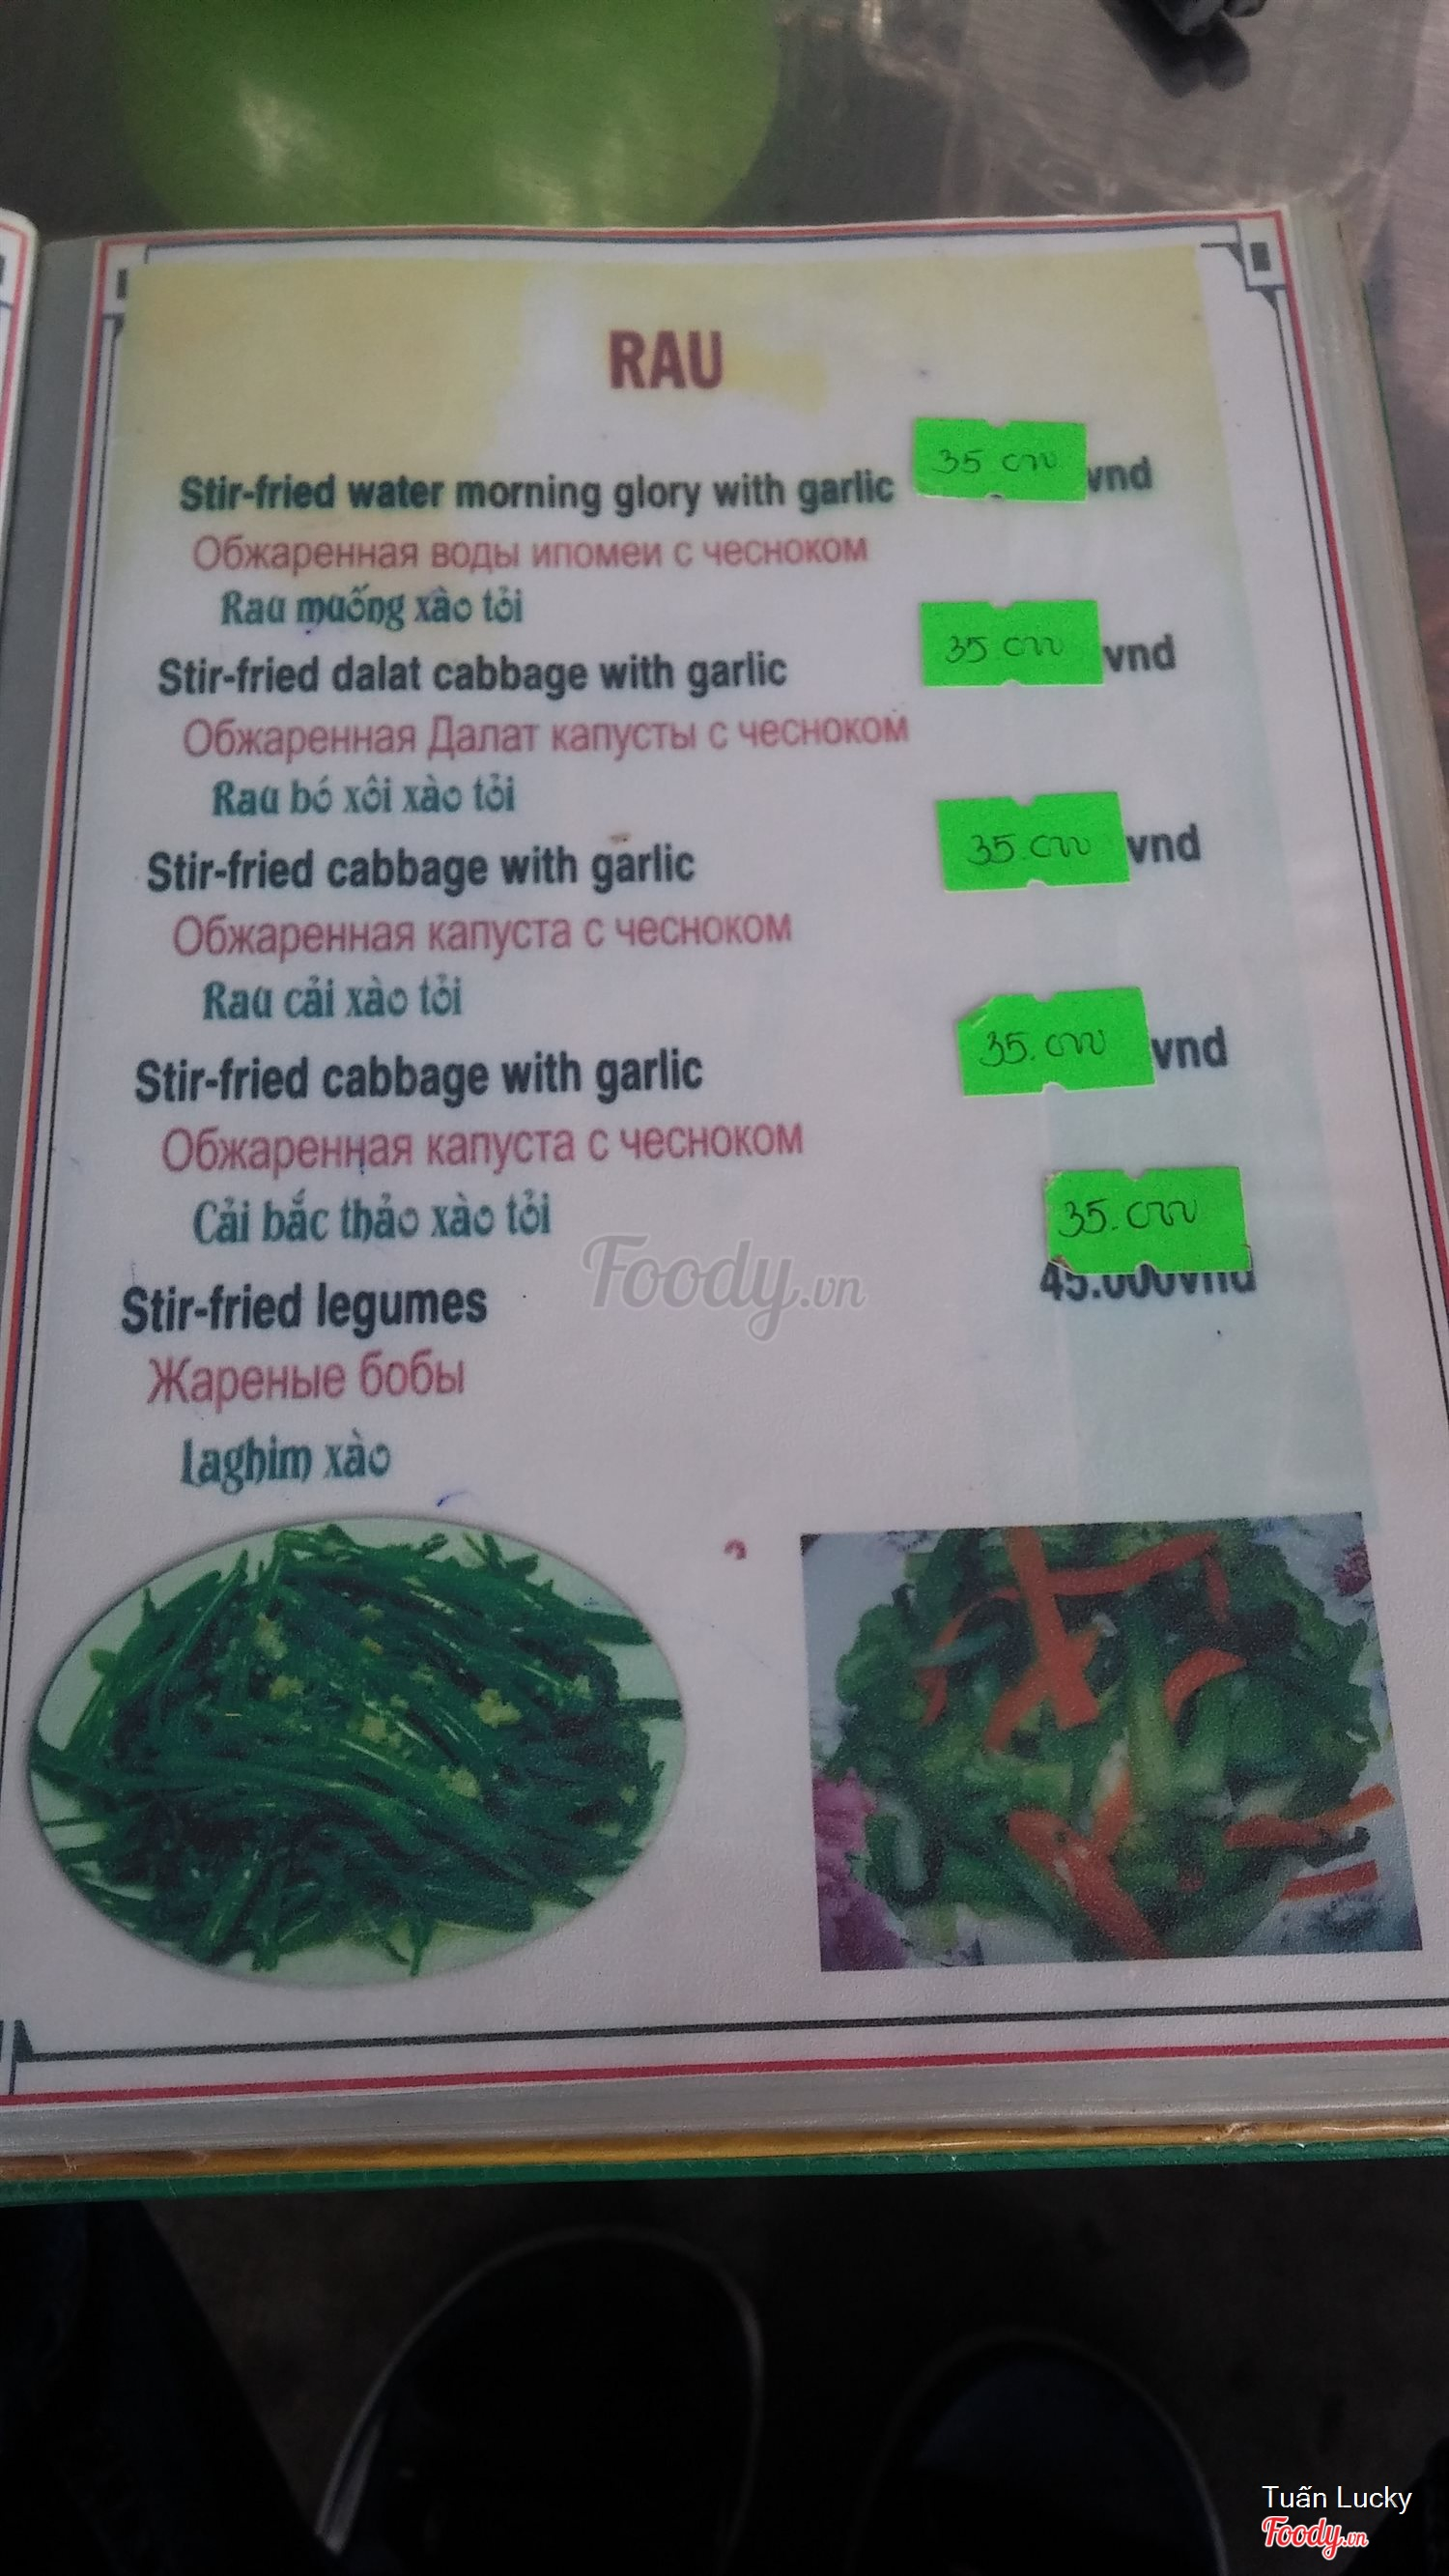 RAU
Stir-fried water morning glory with garlic 35 000 vnd
Обжаренная воды ипомеи с чесноком
Rau muống xào tỏi
Stir-fried dalat cabbage with garlic 35.000 vnd
Обжаренная Далат капусты с чесноком
Rau bó xôi xào tỏi
Stir-fried cabbage with garlic 35.000 vnd
Обжаренная капуста с чесноком
Rau cải xào tỏi
Stir-fried cabbage with garlic 35.000 vnd
Обжаренная капуста с чесноком
Cải bắc thảo xào tỏi
35.000
Stir-fried legumes 45.000vnd
Жареные бобы
Laghim xào
Foody.vn
Tuấn Lucky
Foody.vn